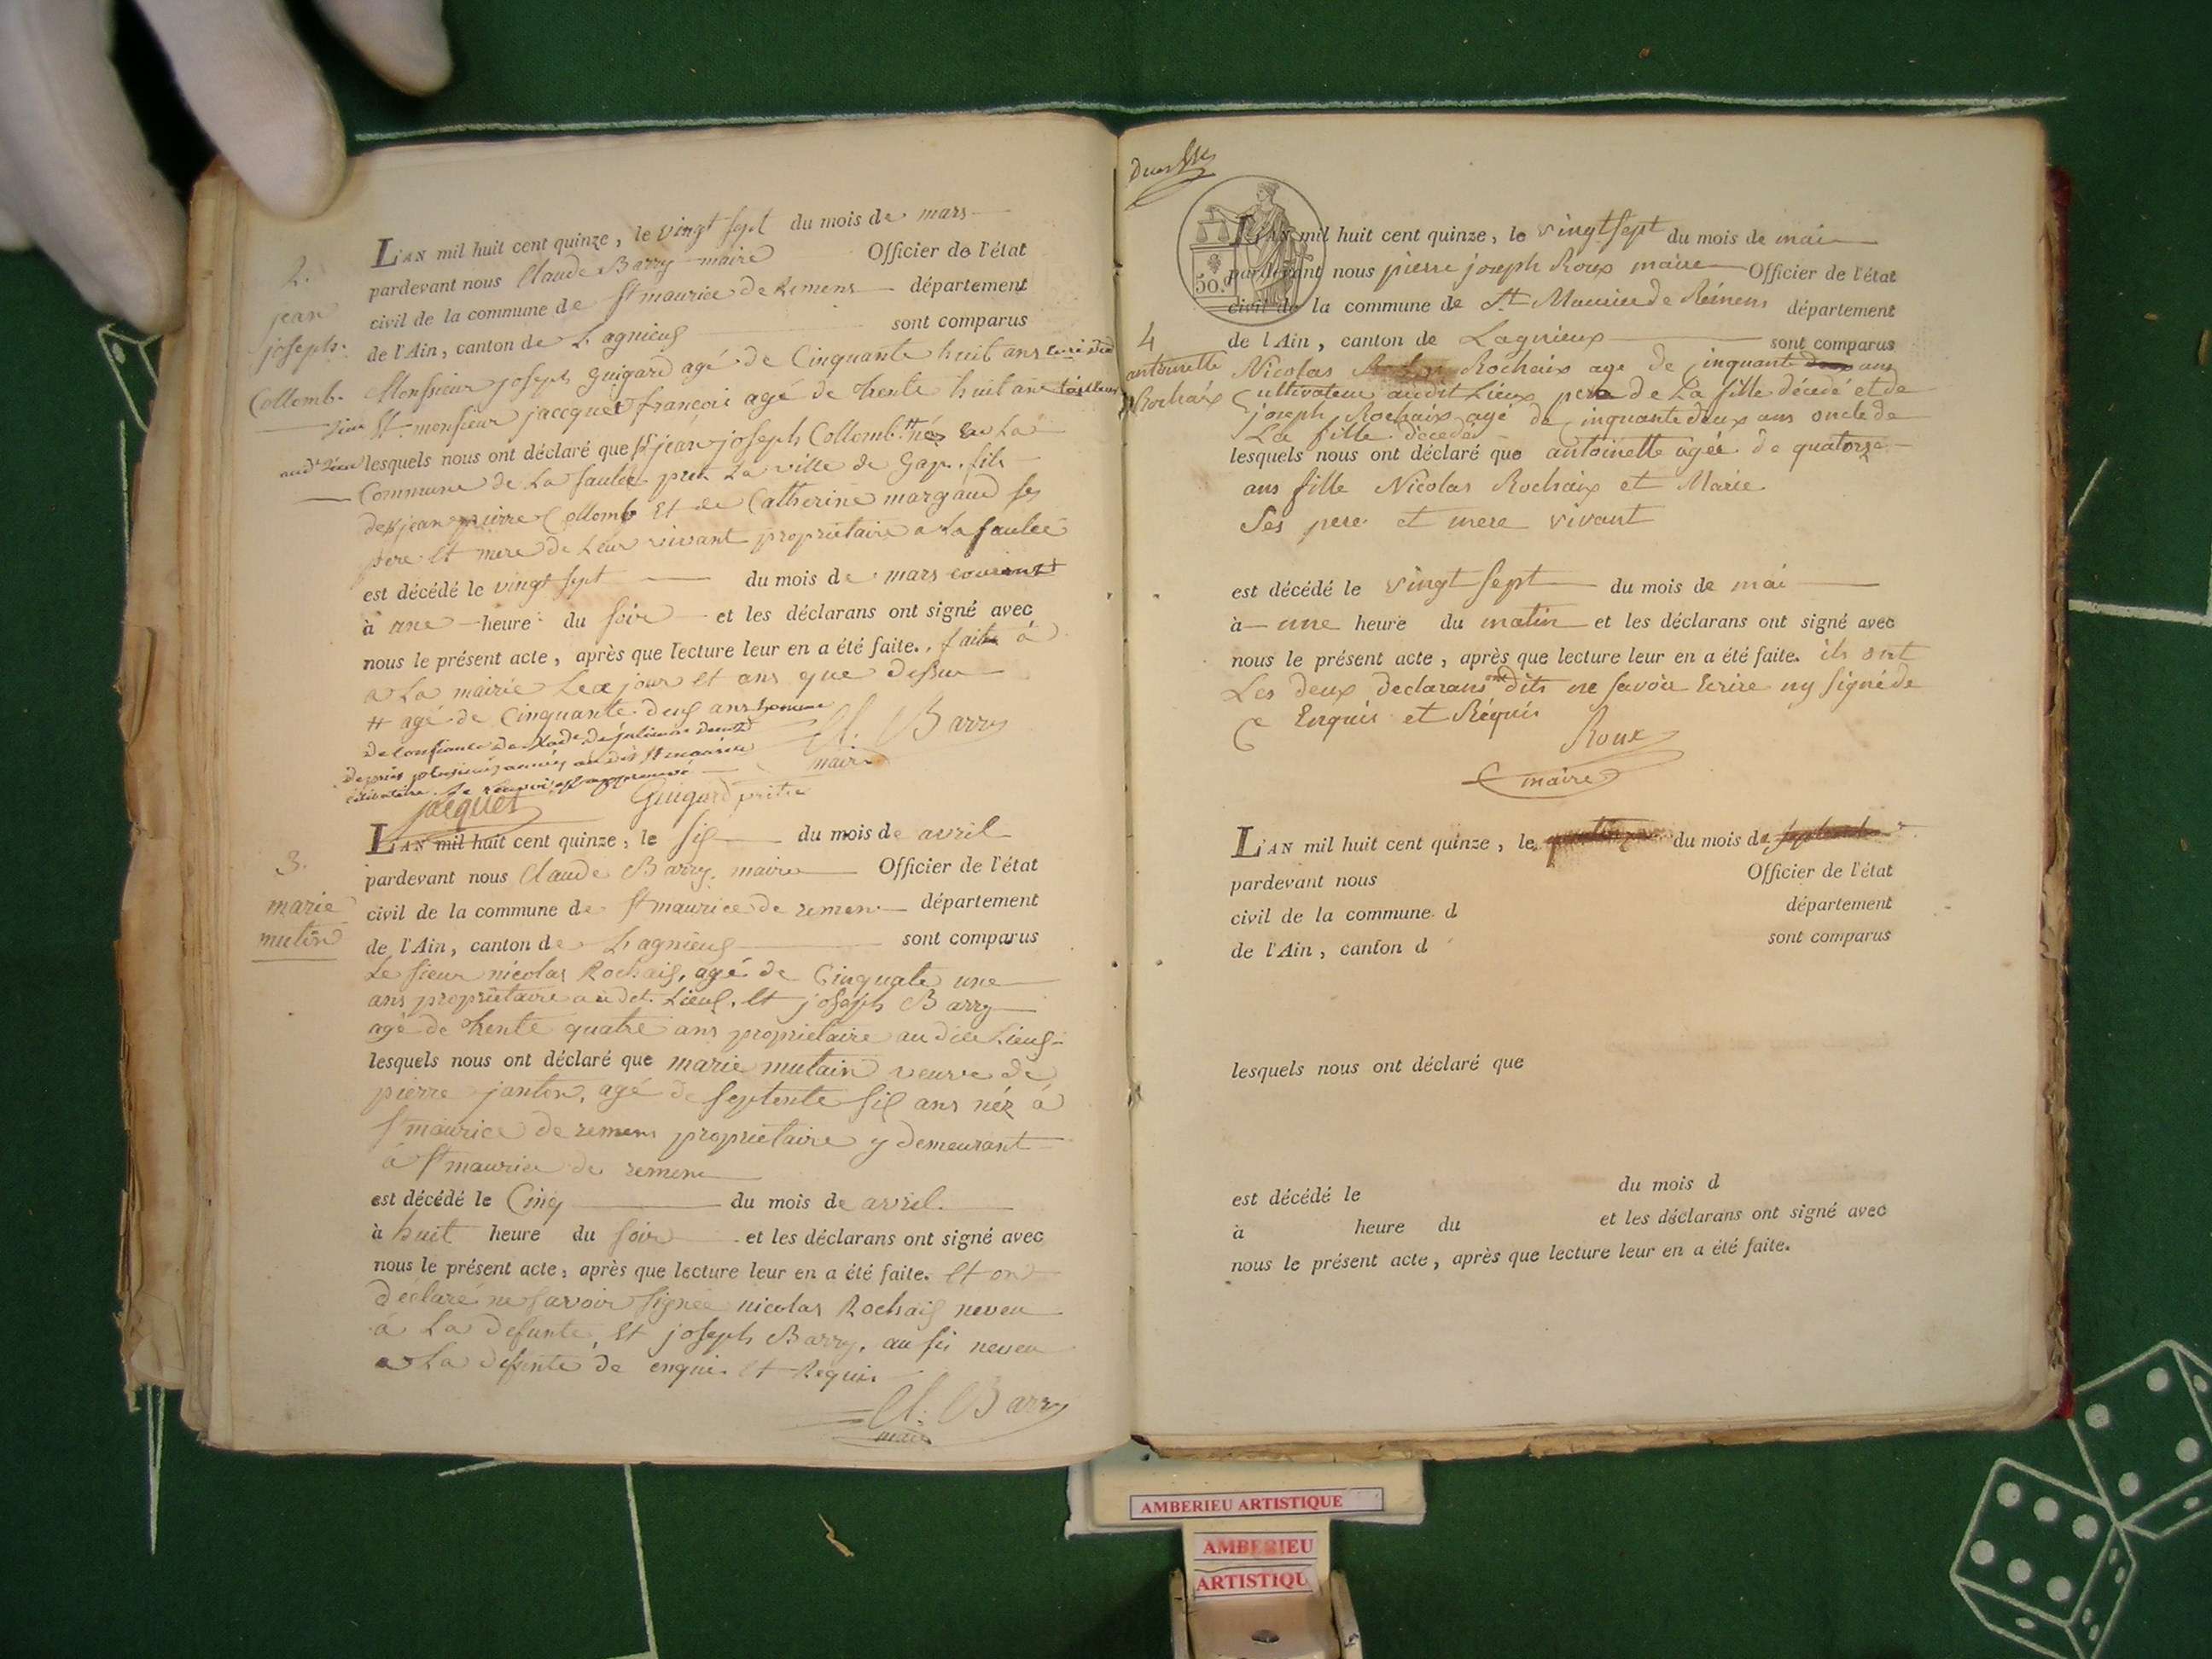 2.
jean
joseph
Collomb.
L'AN mil huit cent quinze, le vingt sept du mois de mars
pardevant nous Claude Barry maire Officier de l'état
civil de la commune de St maurice de Remens département
de l'Ain, canton de Lagnieus sont comparus
Monsieur joseph guigard agé de Cinquante huit ans
Et monsieur jacquet françois agé de trente huit ans tailleur
audt lieu lesquels nous ont déclaré que # jean joseph Collomb né en La
Commune de La faulée près La ville de Gap. fils
de jean pierre Collomb Et de Catherine margaud ses
pere Et mere de Leur vivant propriétaire a La faulée
est décédé le vingt sept du mois de mars courant
à une heure du soir et les déclarans ont signé avec
nous le présent acte, après que lecture leur en a été faite. faite à
a La mairie Les jour et ans que dessus
# agé de Cinquante deux ans homme
de confiance de
depuis plusieurs années au dit St maurice
célibataire. Le renvoi approuvé
Cl. Barry
maire
jacquet
Guigard prêtre
3.
marie
mutin
L'AN mil huit cent quinze, le six du mois de avril
pardevant nous Claude Barry. maire Officier de l'état
civil de la commune de St maurice de remens département
de l'Ain, canton de Lagnieus sont comparus
Le sieur nicolas Rochaix, agé de Cinquate une
ans propriétaire au dt. Lieus. Et joseph Barry
agé de trente quatre ans propriétaire au dite Lieus
lesquels nous ont déclaré que marie mutain veuve de
pierre janton, agé de septente six ans néz à
St maurice de remens propriétaire y demeurant
à St maurice de remens
est décédé le Cinq du mois de avril.
à huit heure du soir et les déclarans ont signé avec
nous le présent acte, après que lecture leur en a été faite. Et on
déclaré ne savoir signée nicolas Rochaix neveu
a La defunte, Et joseph Barry, au si neveu
a La defunte de enquis et Requis
Cl. Barry
maire
50.c
4
antoinette
Rochaix
L'AN mil huit cent quinze, le vingt sept du mois de mai
pardevant nous pierre joseph Roux maire Officier de l'état
civil de la commune de St Maurice de Rémens département
de l'Ain, canton de Lagnieux sont comparus
Nicolas Rochaix age de cinquante ans
Cultivateur audit Lieux pere de La fille décedé et de
joseph Rochaix agé de cinquante deux ans oncle de
La fille décedé
lesquels nous ont déclaré que antoinette agée de quatorze
ans fille Nicolas Rochaix et Marie
Ses pere et mere vivant
est décédé le vingt sept du mois de mai
à une heure du matin et les déclarans ont signé avec
nous le présent acte, après que lecture leur en a été faite. ils ont
Les deux declarans ont dits ne savoir Ecrire ny signé de
Ce Enquis et Réquis
Roux
maire
L'AN mil huit cent quinze, le du mois de
pardevant nous Officier de l'état
civil de la commune d département
de l'Ain, canton d sont comparus
lesquels nous ont déclaré que
est décédé le du mois d
à heure du et les déclarans ont signé avec
nous le présent acte, après que lecture leur en a été faite.
AMBERIEU ARTISTIQUE
AMBERIEU
ARTISTIQU